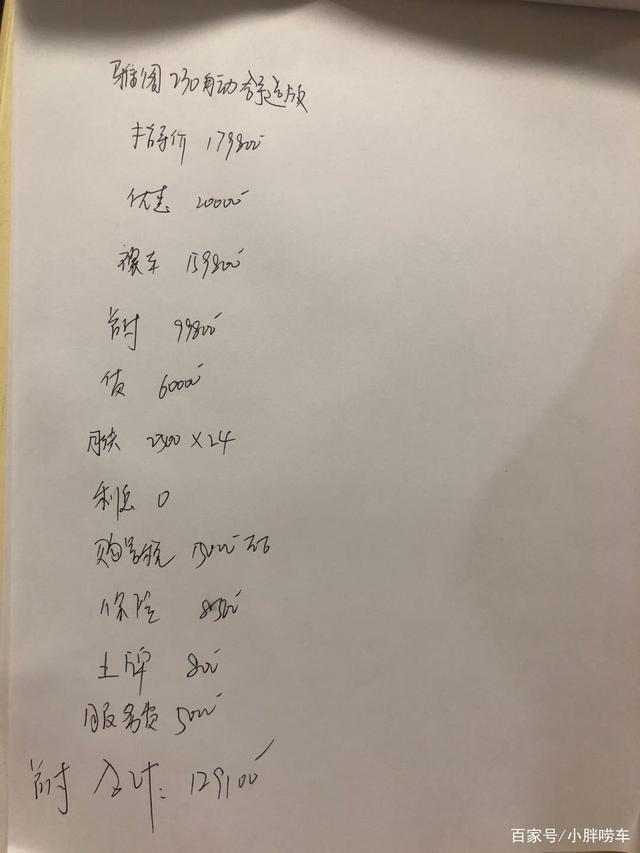 雅阁 230自动舒适版
指导价 179800
优惠 20000
裸车 159800
首付 99800
贷 60000
月供 2500×24
利息 0
购置税 15000左右
保险 8500
上牌 800
服务费 5000
首付 合计: 129100
百家号/小胖唠车